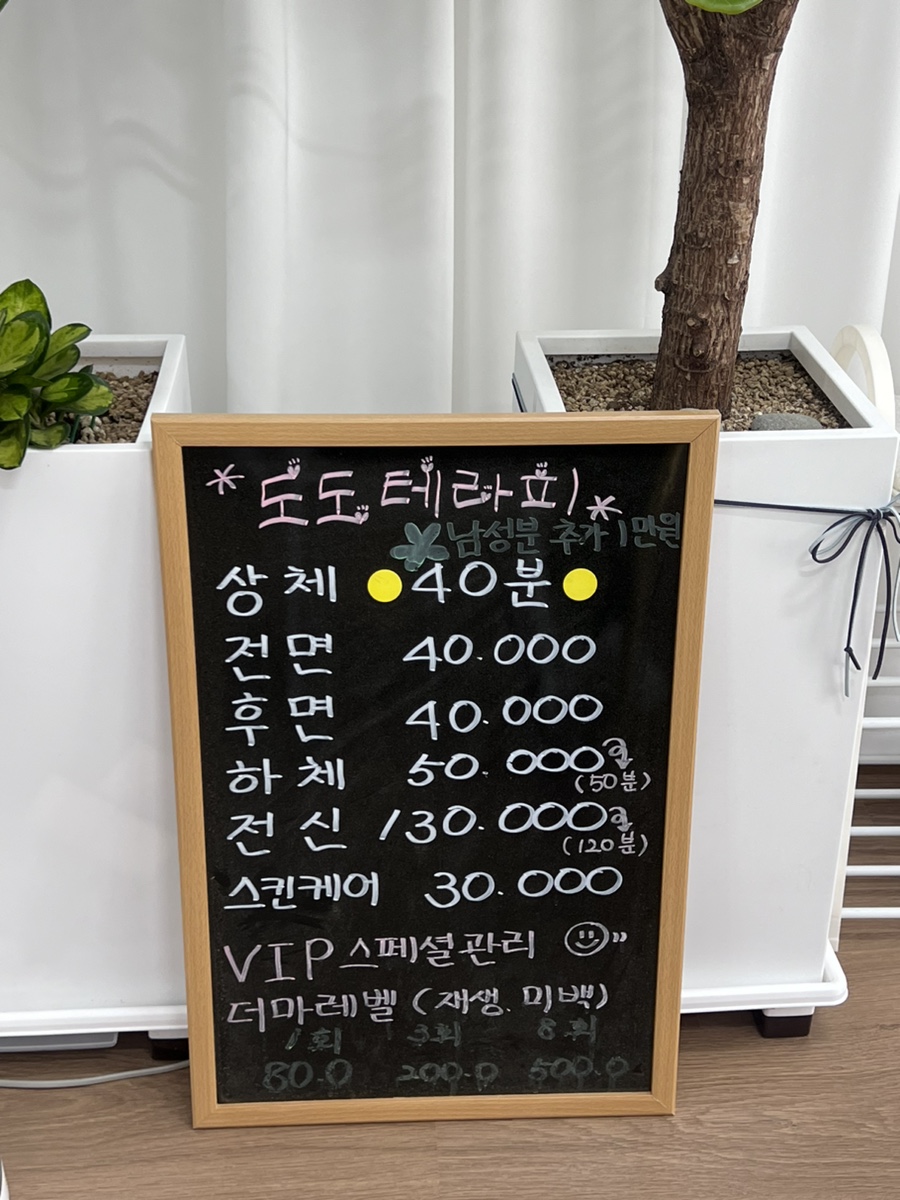 * 도도테라피 *
남성분 추가 1만원
상체 40분
전면 40.000
후면 40.000
하체 50.000
(50분)
전신 130.000
(120분)
스킨케어 30.000
VIP 스페셜관리
더마레벨 (재생. 미백)
1회 3회 8회
80.0 200.0 500.0